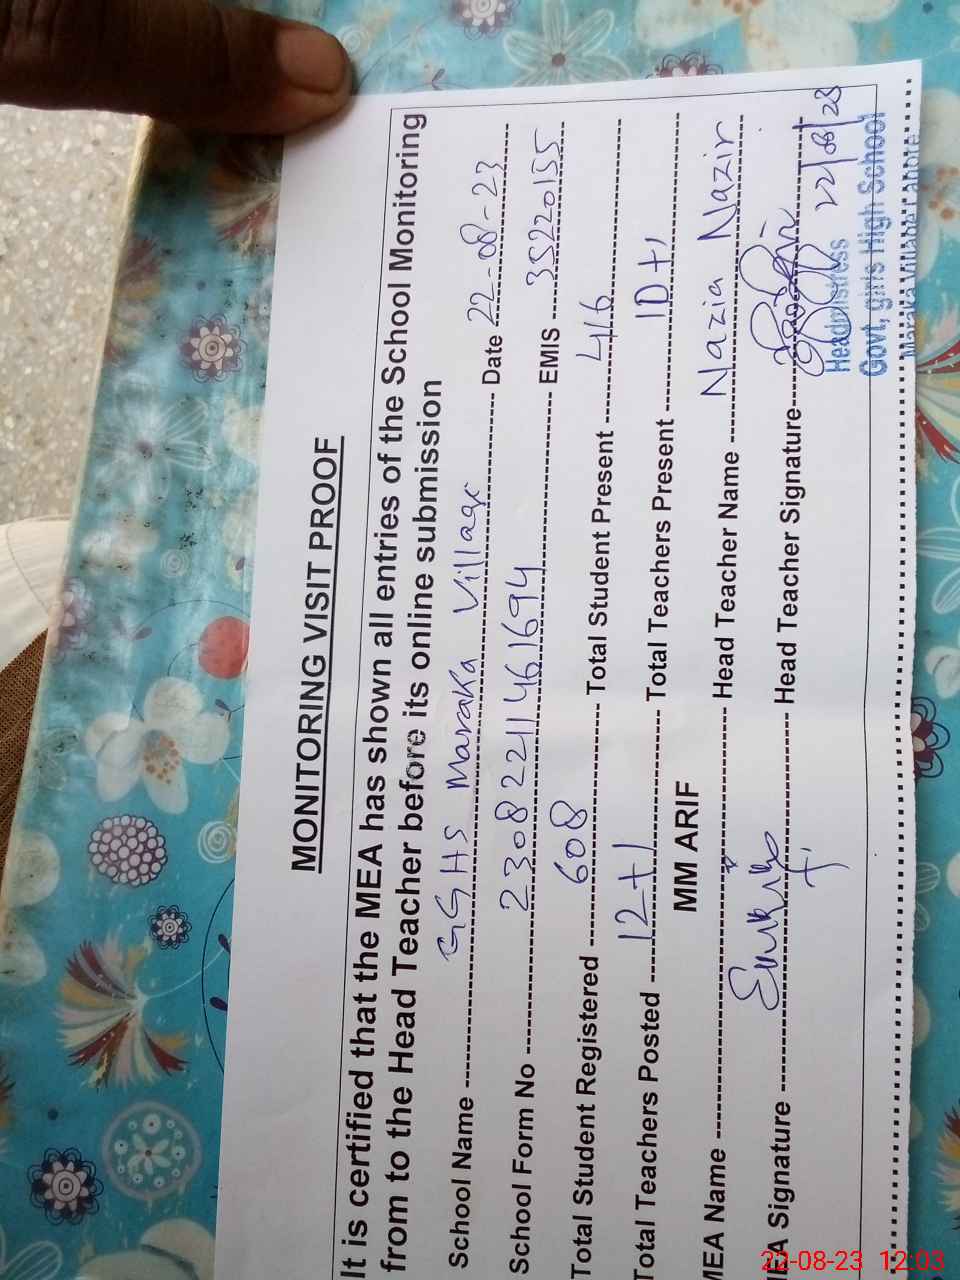 MONITORING VISIT PROOF
It is certified that the MEA has shown all entries of the School Monitoring
from to the Head Teacher before its online submission
School Name GGHS Maraka Village Date 22-08-23
School Form No 230822114461694 EMIS 35220155
Total Student Registered 608 Total Student Present 416
Total Teachers Posted 12+1 Total Teachers Present 10+1
MM ARIF
MEA Name Head Teacher Name Nazia Nazir
EA Signature Head Teacher Signature
22/08/23
Headmistress
Govt, girls High School
Maraka Village Lahore
22-08-23 12:03